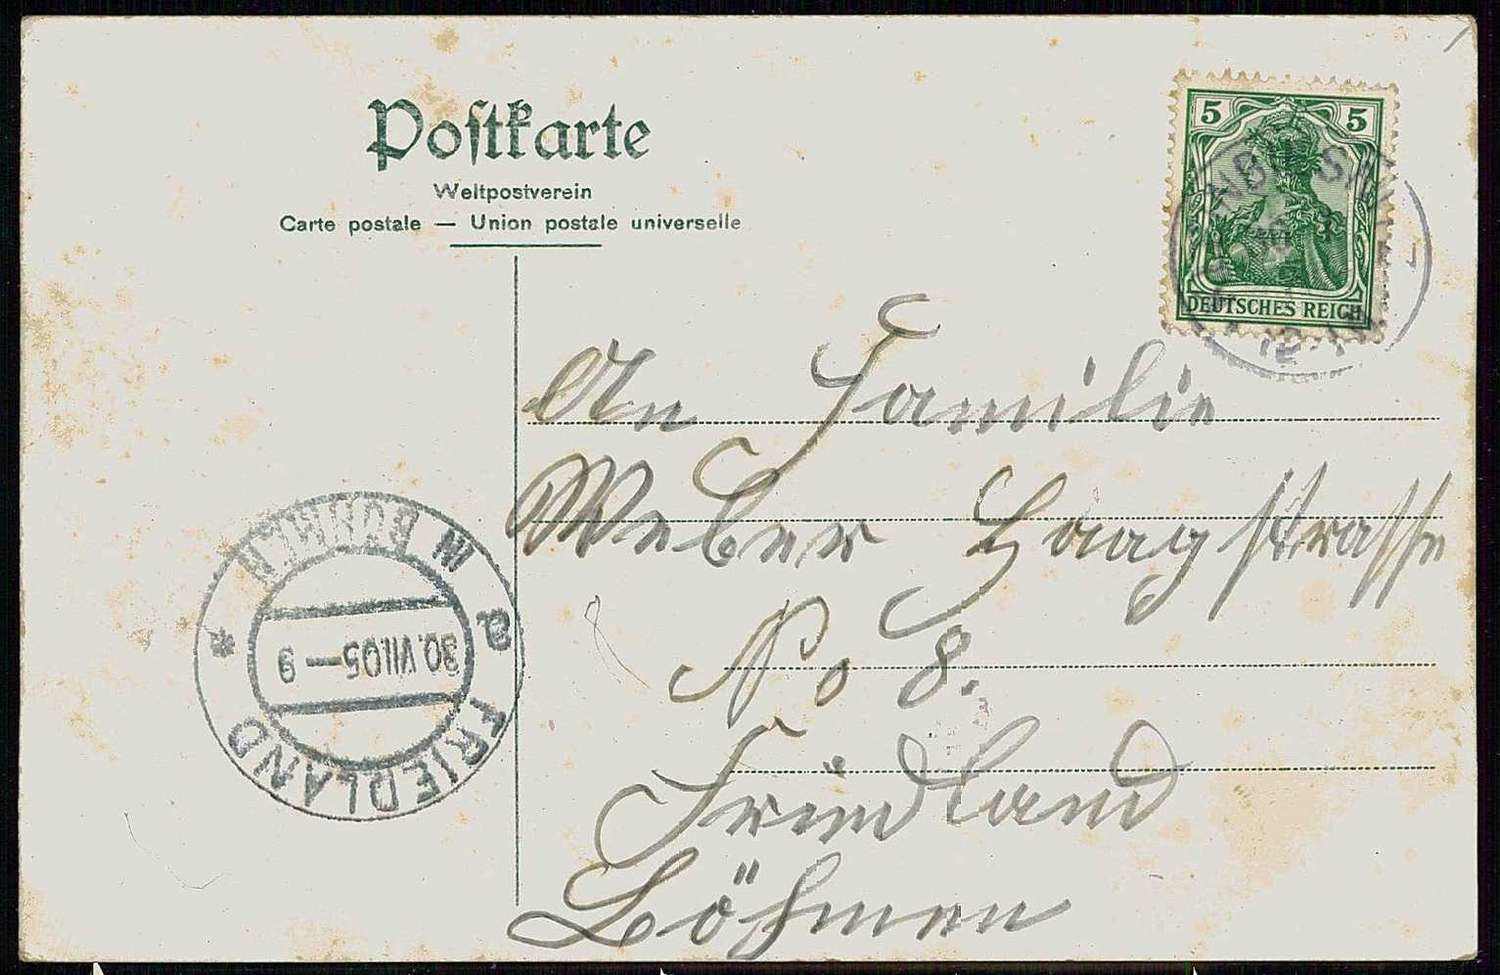 Postkarte
Weltpostverein
Carte postale — Union postale universelle
5 5
DEUTSCHES REICH
An Familie
Weber Haagstrasse
No 8.
Friedland
Böhmen
FRIEDLAND
30.VII.05—9